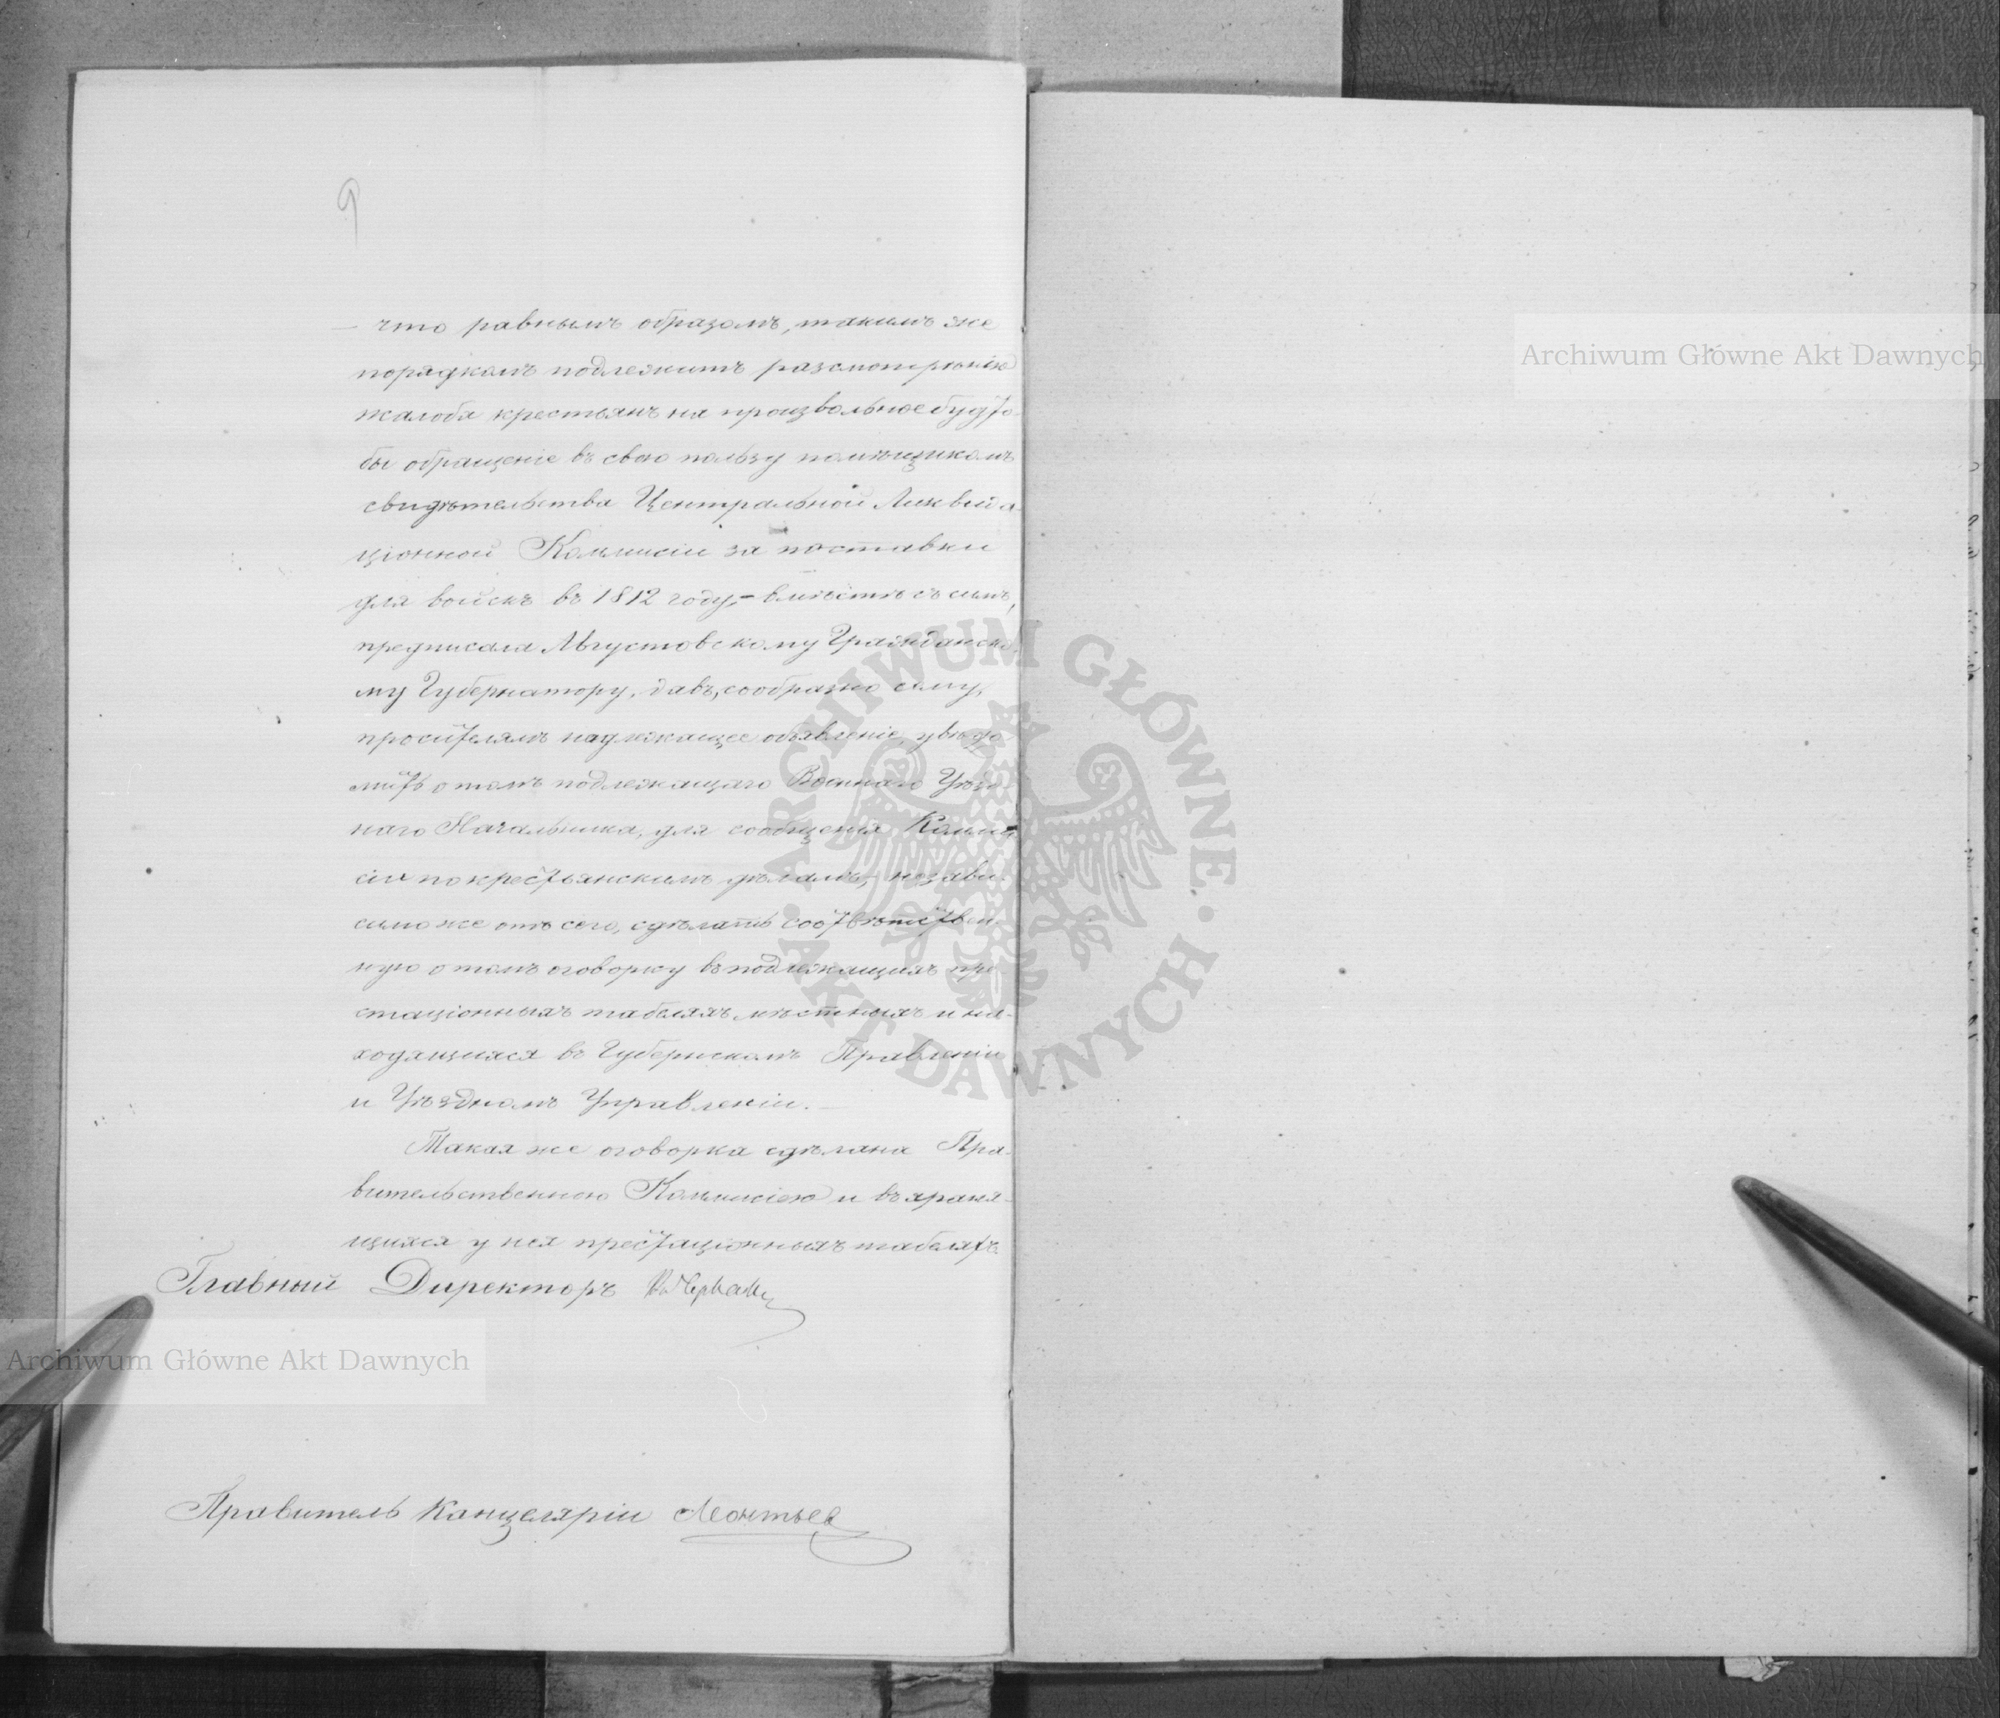 9
— что равнымъ образомъ, такимъ же
порядкомъ подлежитъ разсмотрѣнію
жалоба крестьянъ на произвольное будто-
бы обращеніе въ свою пользу помѣщикомъ
свидѣтельства Центральной Ликвида-
ціонной Коммисіи за поставки
для войскъ въ 1812 году, – вмѣстѣ съ симъ,
предписала Августовскому Гражданско-
му Губернатору, давъ, сообразно сему,
просителямъ надлежащее объявленіе, увѣдо-
мить о томъ подлежащаго Военнаго Уѣзд-
наго Начальника, для сообщенія Комми-
сіи по крестьянскимъ дѣламъ, – незави-
симо же отъ сего, сдѣлать соотвѣтствен-
ную о томъ оговорку въ подлежащихъ пре-
стаціонныхъ табеляхъ мѣстныхъ и на-
ходящихся въ Губернскомъ Правленіи
и Уѣздномъ Управленіи. —
Такая же оговорка сдѣлана Пра-
вительственною Коммисіею и въ храня-
щихся у нея престаціонныхъ табеляхъ
Главный Директоръ
Правитель Канцеляріи Леонтьев
Archiwum Główne Akt Dawnych
Archiwum Główne Akt Dawnych
ARCHIWUM GŁÓWNE · AKT DAWNYCH ·